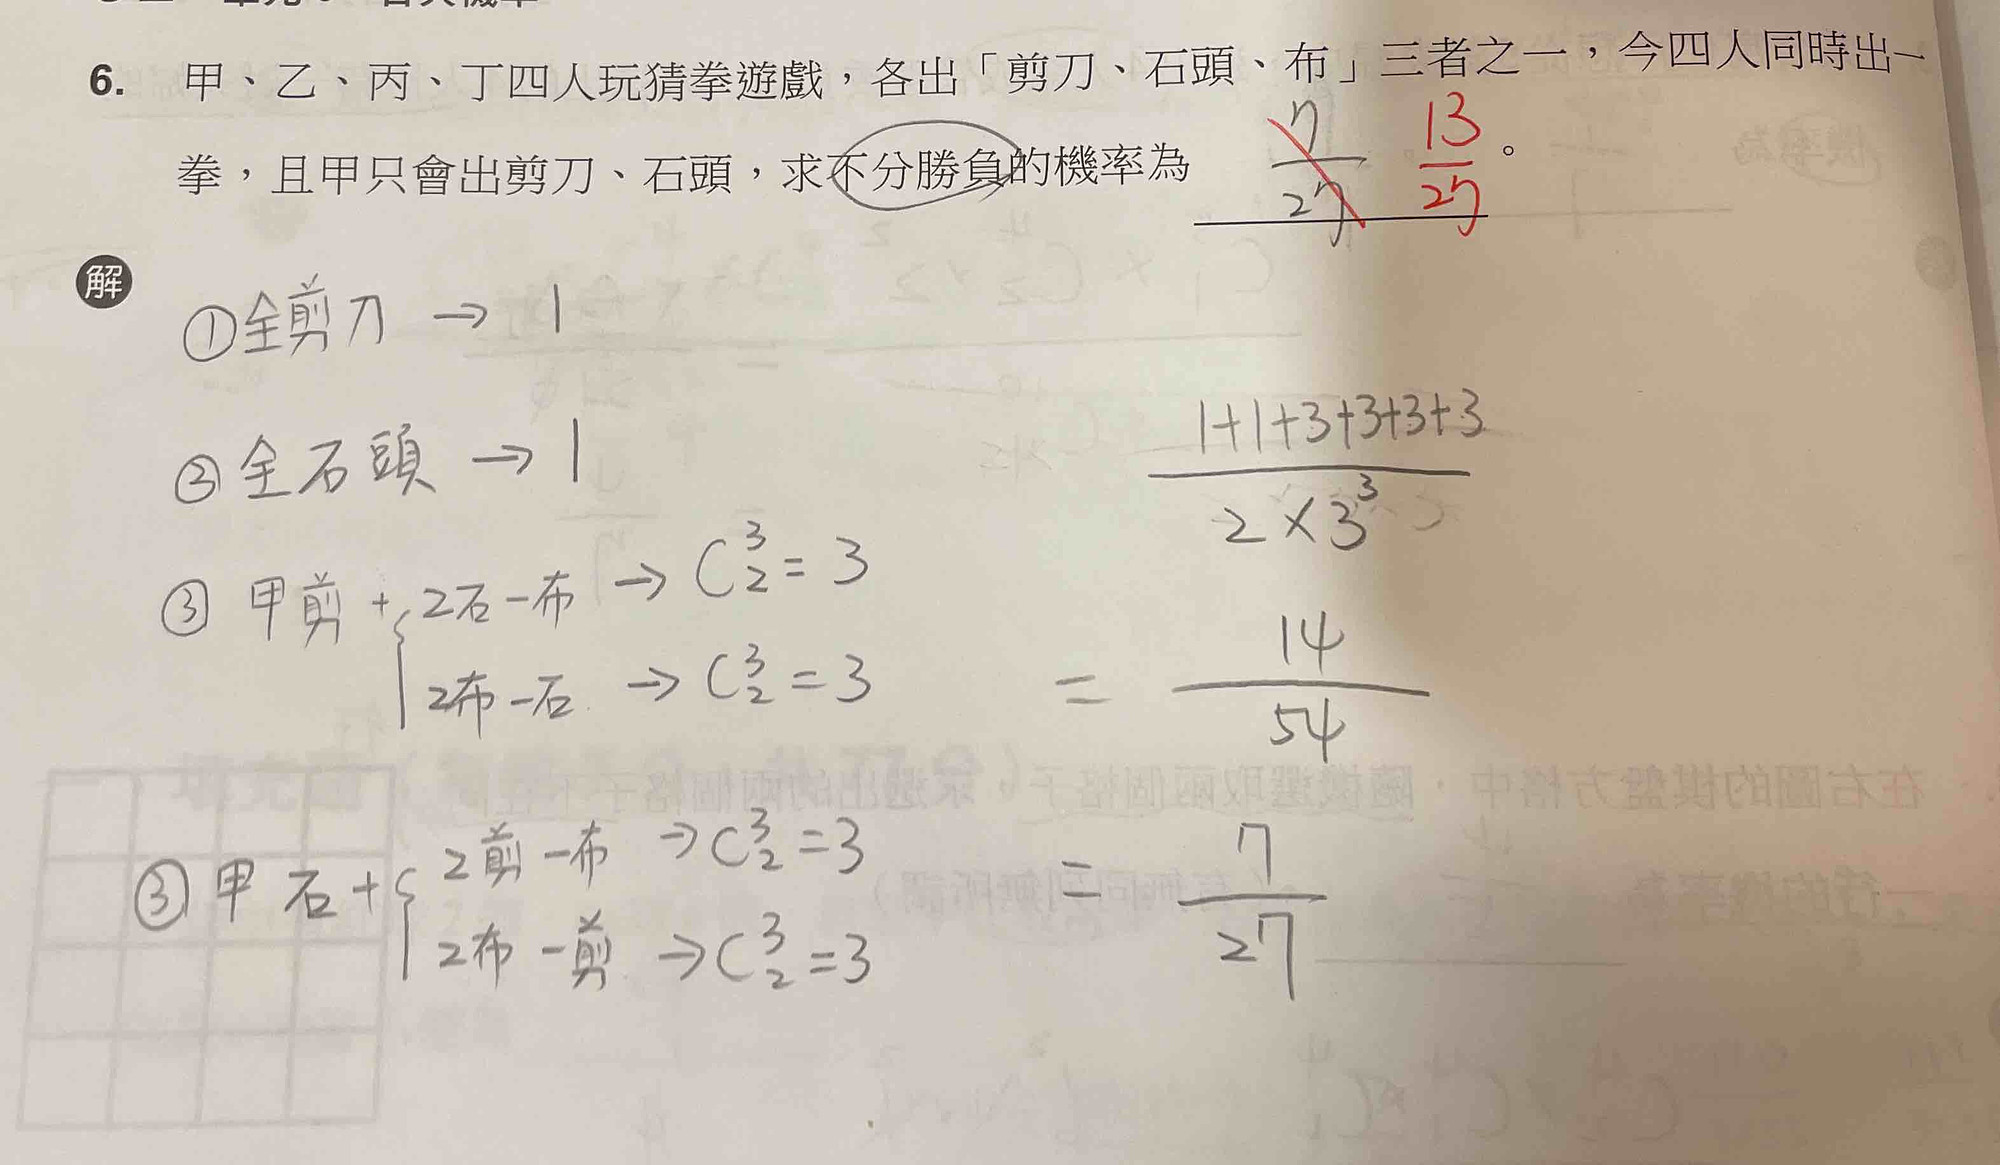 6. 甲、乙、丙、丁四人玩猜拳遊戲，各出「剪刀、石頭、布」三者之一，今四人同時出一
拳，且甲只會出剪刀、石頭，求不分勝負的機率為 7/27 13/27 。
解
①全剪刀 → 1
②全石頭 → 1
③ 甲剪 + { 2石一布 → C³₂ = 3
2布一石 → C³₂ = 3
③ 甲石 + { 2剪一布 → C³₂ = 3
2布一剪 → C³₂ = 3
1+1+3+3+3+3
2 × 3³
= 14/54
= 7/27